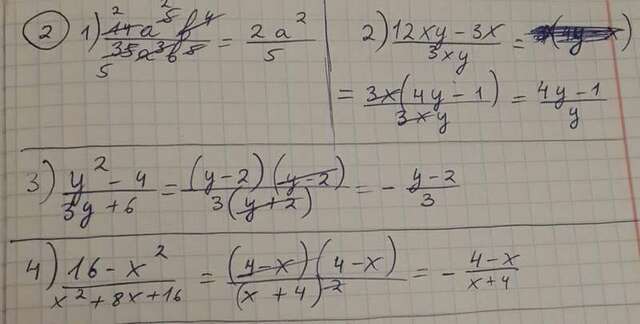 2 1) 14a⁵b⁴/35a³b⁵ = 2a²/5
2) 12xy-3x/3xy =
= 3x(4y-1)/3xy = 4y-1/y
3) y²-4/3y+6 = (y-2)(y-2)/3(y+2) = - y-2/3
4) 16-x²/x²+8x+16 = (4-x)(4-x)/(x+4)² = - 4-x/x+4